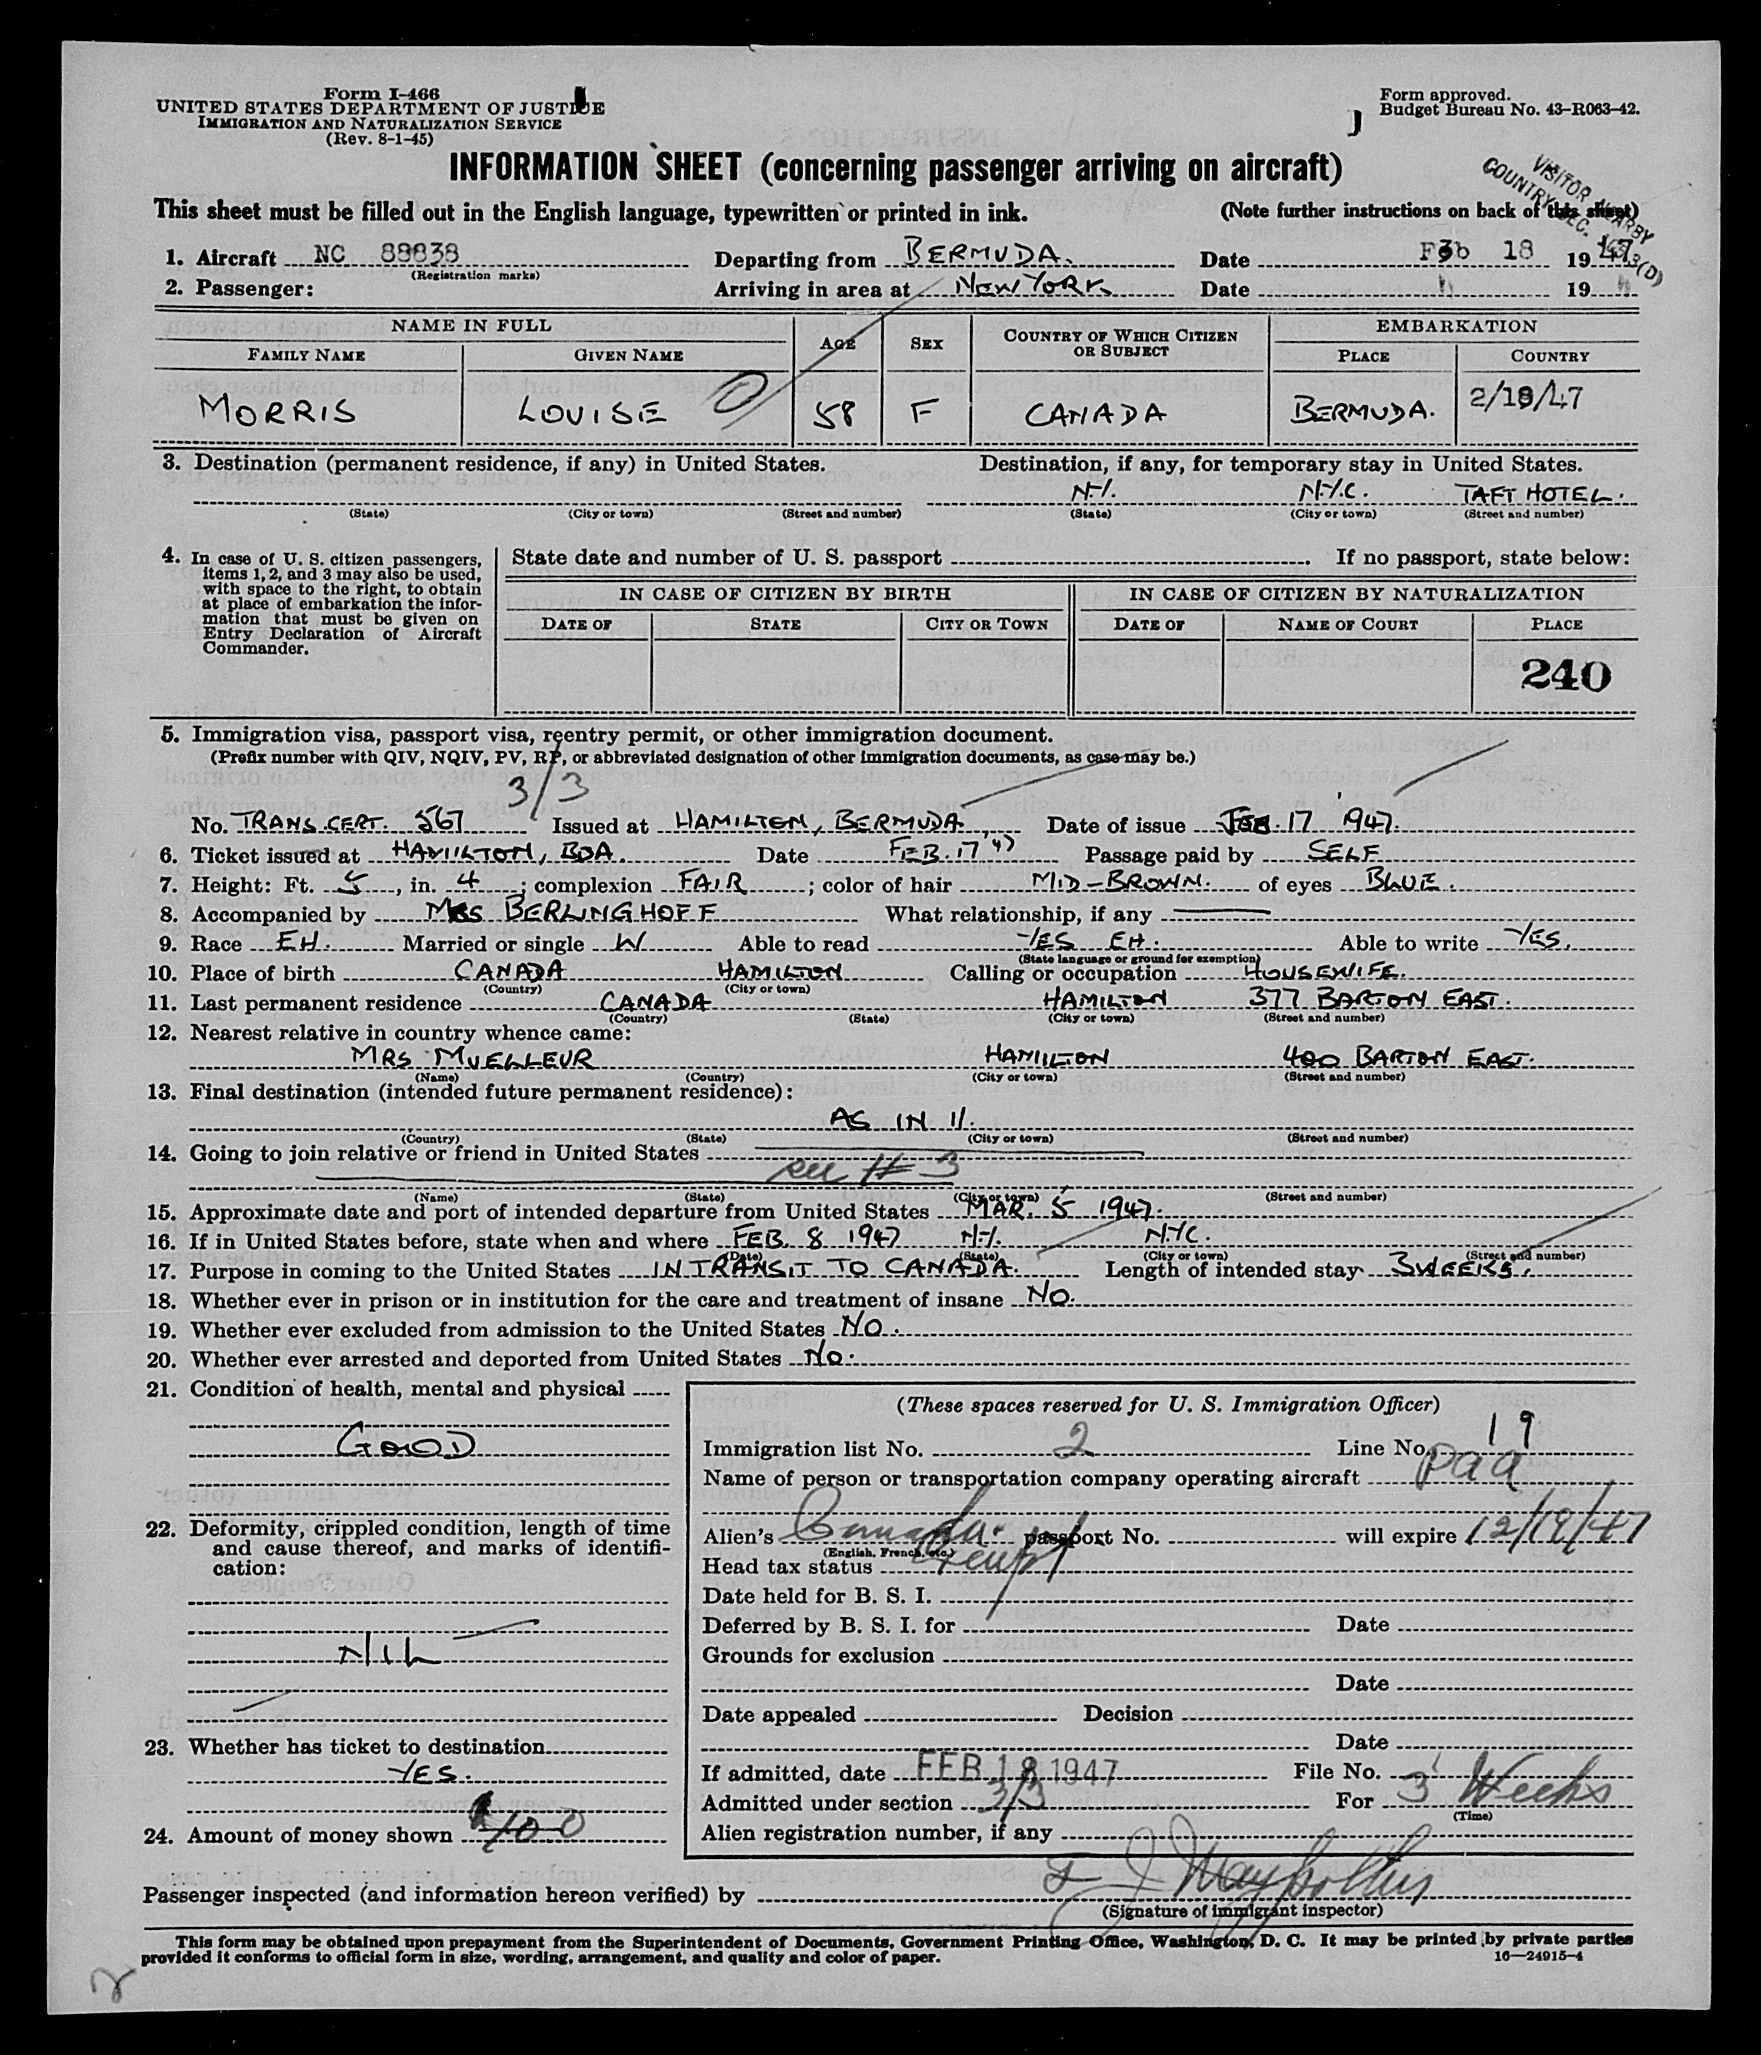 Form I-466
UNITED STATES DEPARTMENT OF JUSTICE
IMMIGRATION AND NATURALIZATION SERVICE
(Rev. 8-1-45)
Form approved.
Budget Bureau No. 43-R063-42.
INFORMATION SHEET (concerning passenger arriving on aircraft)
VISITOR NEARBY
COUNTRY SEC.
This sheet must be filled out in the English language, typewritten or printed in ink. (Note further instructions on back of this sheet)
1. Aircraft NC 88838 Departing from BERMUDA. Date Feb 18 1947
(Registration marks)
2. Passenger: Arriving in area at NEW YORK Date " 19 "
NAME IN FULL AGE SEX COUNTRY OF WHICH CITIZEN OR SUBJECT EMBARKATION
FAMILY NAME GIVEN NAME PLACE COUNTRY
MORRIS LOUISE 58 F CANADA BERMUDA. 2/18/47
3. Destination (permanent residence, if any) in United States. Destination, if any, for temporary stay in United States.
N.Y. N.Y.C. TAFT HOTEL.
(State) (City or town) (Street and number) (State) (City or town) (Street and number)
4. In case of U. S. citizen passengers, items 1, 2, and 3 may also be used, with space to the right, to obtain at place of embarkation the information that must be given on Entry Declaration of Aircraft Commander.
State date and number of U. S. passport If no passport, state below:
IN CASE OF CITIZEN BY BIRTH IN CASE OF CITIZEN BY NATURALIZATION
DATE OF STATE CITY OR TOWN DATE OF NAME OF COURT PLACE
240
5. Immigration visa, passport visa, reentry permit, or other immigration document.
(Prefix number with QIV, NQIV, PV, RP, or abbreviated designation of other immigration documents, as case may be.)
3/3
No. TRANS. CERT. 567 Issued at HAMILTON, BERMUDA Date of issue FEB. 17 1947.
6. Ticket issued at HAMILTON, BDA. Date FEB. 17 '47 Passage paid by SELF
7. Height: Ft. 5, in. 4; complexion FAIR; color of hair MID-BROWN. of eyes BLUE.
8. Accompanied by MRS BERLINGHOFF What relationship, if any
9. Race EH. Married or single W Able to read YES EH. Able to write YES.
(State language or ground for exemption)
10. Place of birth CANADA HAMILTON Calling or occupation HOUSEWIFE.
(Country) (City or town)
11. Last permanent residence CANADA HAMILTON 377 BARTON EAST.
(Country) (State) (City or town) (Street and number)
12. Nearest relative in country whence came:
MRS MUELLEUR HAMILTON 400 BARTON EAST.
(Name) (Country) (City or town) (Street and number)
13. Final destination (intended future permanent residence):
AS IN 11.
(Country) (State) (City or town) (Street and number)
14. Going to join relative or friend in United States
see # 3
(Name) (State) (City or town) (Street and number)
15. Approximate date and port of intended departure from United States MAR. 5 1947.
16. If in United States before, state when and where FEB. 8 1947 N.Y. N.Y.C.
(Date) (State) (City or town) (Street and number)
17. Purpose in coming to the United States IN TRANSIT TO CANADA. Length of intended stay 3 WEEKS.
18. Whether ever in prison or in institution for the care and treatment of insane NO.
19. Whether ever excluded from admission to the United States NO.
20. Whether ever arrested and deported from United States NO.
21. Condition of health, mental and physical
GOOD
22. Deformity, crippled condition, length of time and cause thereof, and marks of identification:
NIL
23. Whether has ticket to destination
YES.
24. Amount of money shown $100
(These spaces reserved for U. S. Immigration Officer)
Immigration list No. 2 Line No. 19
Name of person or transportation company operating aircraft paa
Alien's Canada passport No. will expire 12/19/47
(English, French, etc.)
Head tax status Exempt
Date held for B. S. I.
Deferred by B. S. I. for Date
Grounds for exclusion
Date
Date appealed Decision
Date
If admitted, date FEB 18 1947 File No.
Admitted under section 3/3 For 3 Weeks
(Time)
Alien registration number, if any
Passenger inspected (and information hereon verified) by
(Signature of immigrant inspector)
This form may be obtained upon prepayment from the Superintendent of Documents, Government Printing Office, Washington, D. C. It may be printed by private parties
provided it conforms to official form in size, wording, arrangement, and quality and color of paper. 16—24915-4
2